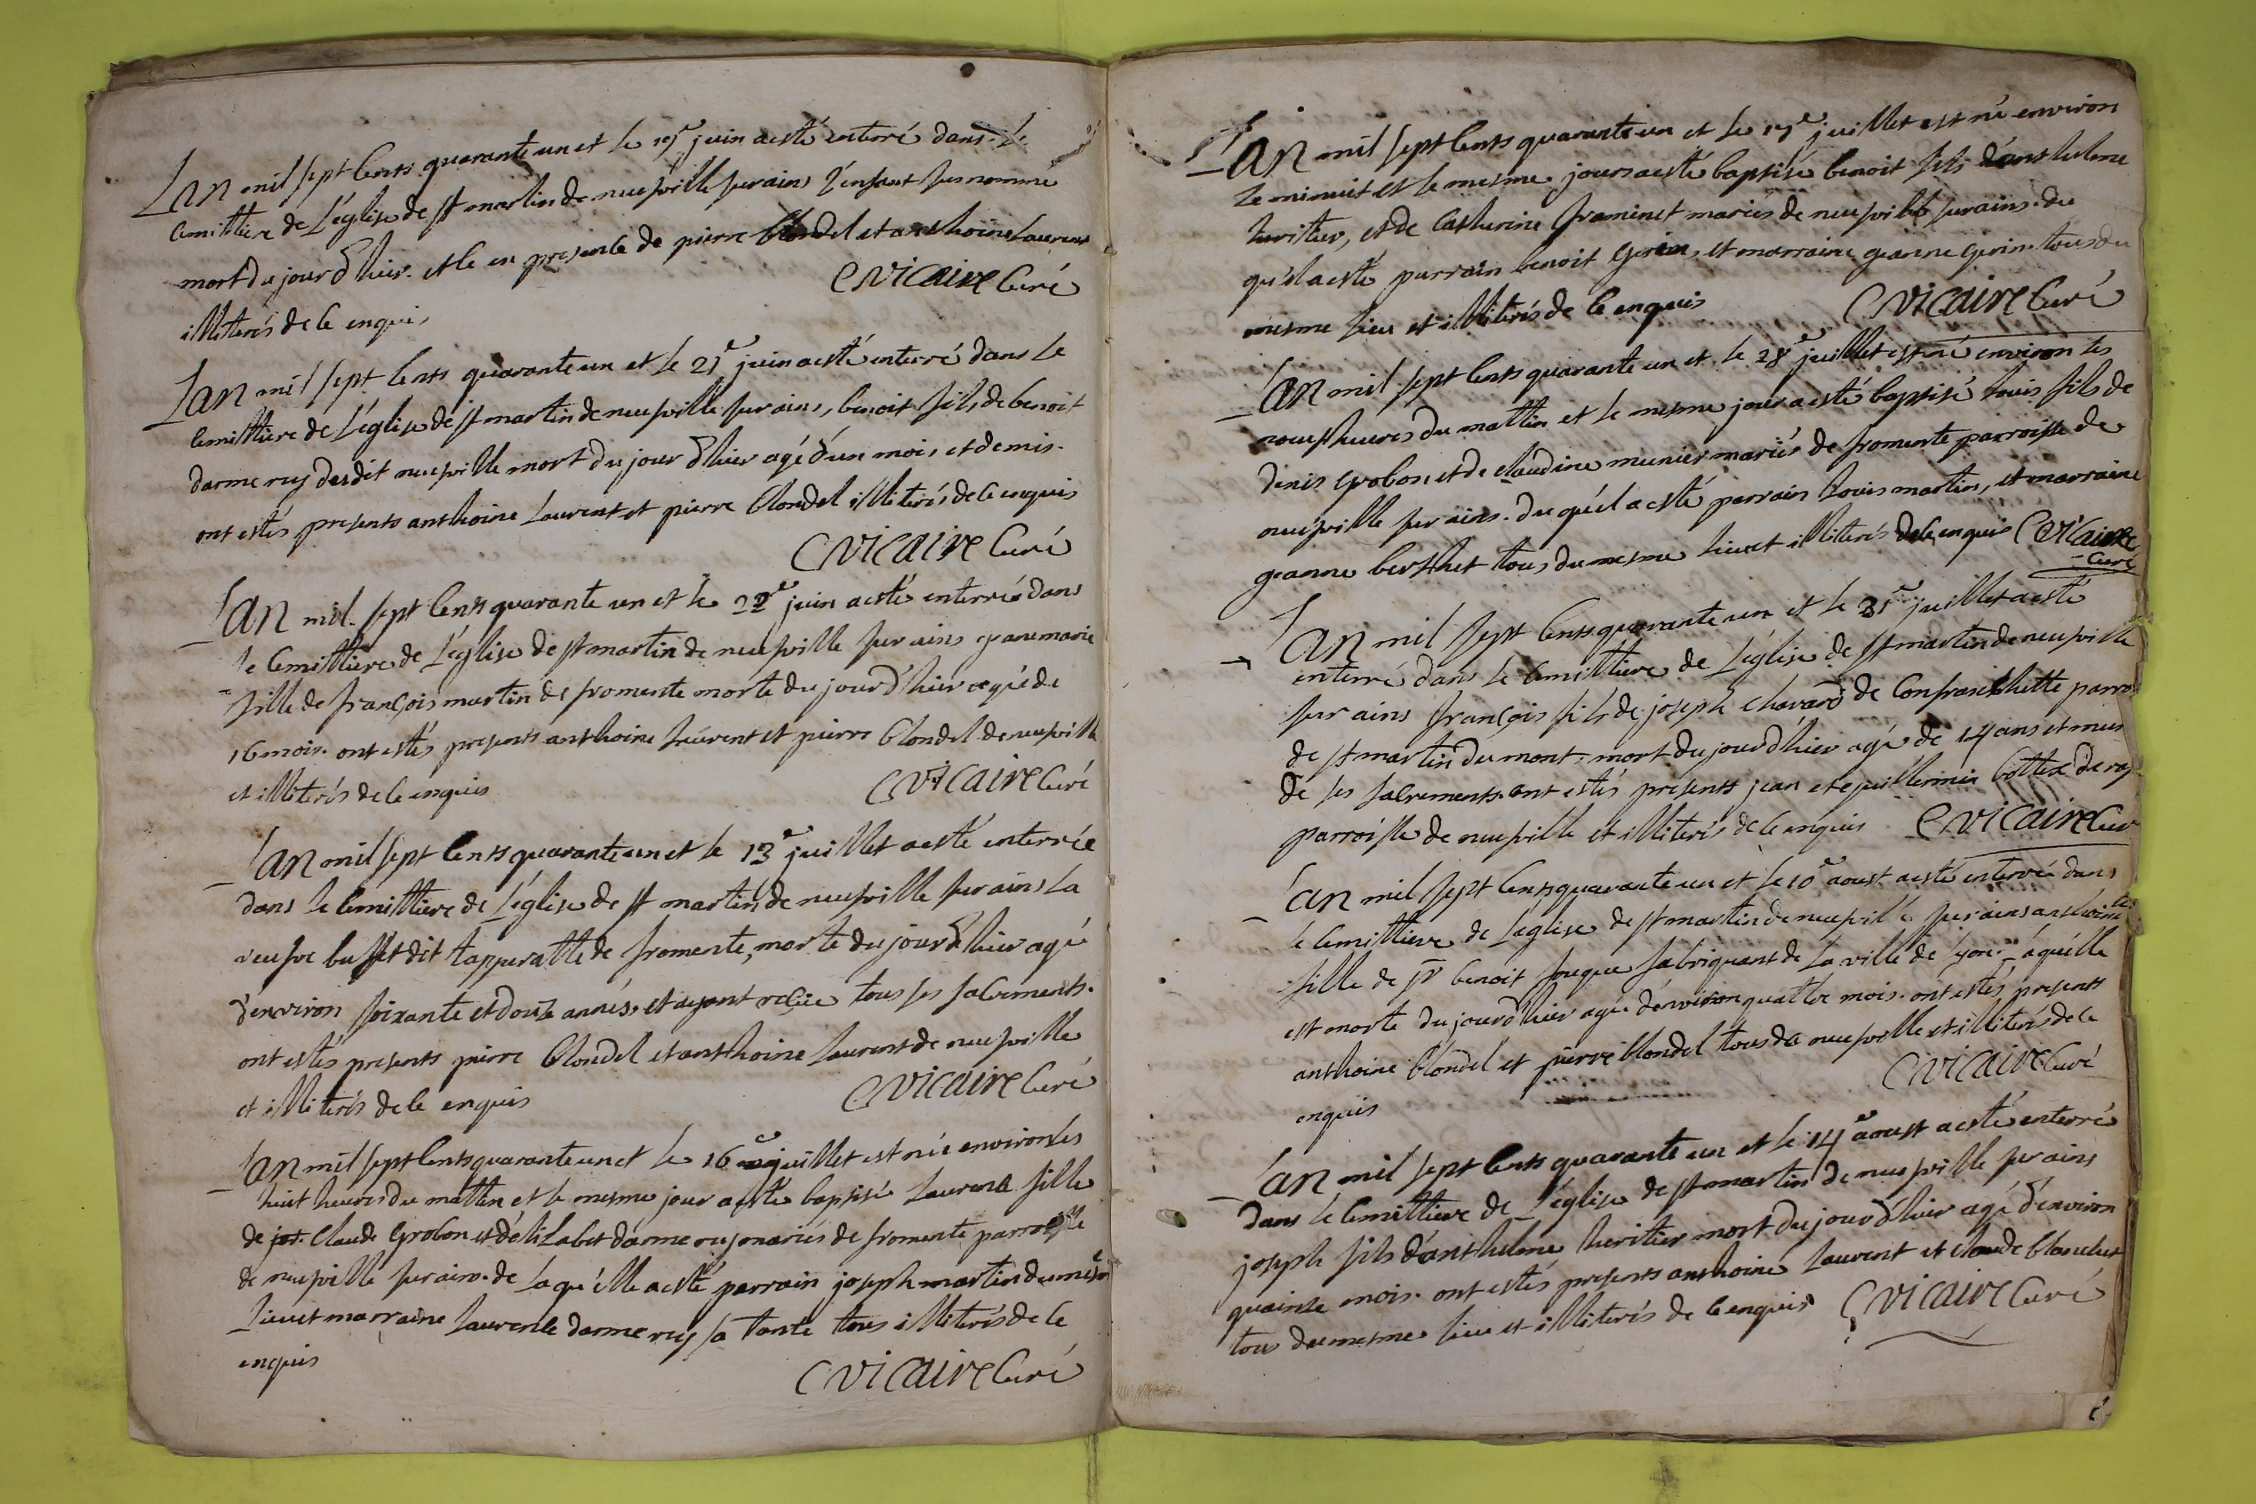 Lan mil sept cents quarante un et le 19e juin a esté enterré dans le
cemittiere de L'église de st martin de neufville sur ains l'enfant surnommé
mort du jour d'hier. et ce en presence de pierre blondel et anthoine Laurent
illiterés de ce enquis
C vicaire Curé
Lan mil sept cents quarante un et le 21e juin a esté enterré dans le
cemittiere de L'église de st martin de neufville sur ains, benoit fils de benoit
darmerey dudit neufville mort du jour d'hier agé d'un mois et demis.
ont estés presents anthoine Laurent et pierre blondel illiterés de ce enquis
C vicaire Curé
Lan mil sept cents quarante un et le 22e juin a esté enterrée dans
le cemittiere de L'église de st martin de neufville sur ains janemarie
fille de françois martin de fromente morte du jour d'hier agé de
16 mois. ont estés presents anthoine Laurent et pierre blondel de neufville
et illiterés de ce enquis
C vicaire Curé
Lan mil sept cents quarante un et le 13e juillet a esté enterrée
dans le cemittiere de L'église de st martin de neufville sur ains La
veufve buffet dit tappuratte de fromente, morte du jour d'hier agé
d'environ soixante et douze annés, et ayant reçue tous ses sacrements.
ont estés presents pierre blondel et anthoine Laurent de neufville
et illiterés de ce enquis
C vicaire Curé
Lan mil sept cents quarante un et le 16e juillet est née environ les
huit heures du mattin et le mesme jour a esté baptisé Laurence fille
de claude grobon et d'élizabet darmerey mariés de fromente parroisse
de neufville sur ains. de laqu'elle a esté parrain joseph martin du mesme
Lieu et marraine Laurence darmerey sa tante tous illiterés de ce
enquis
C vicaire Curé
Lan mil sept cents quarante un et le 17e juillet est né environ
le minuit et le mesme jour a esté baptisé benoit fils d'anthelme
heritier, et de Catherine framinet mariés de neufville sur ains. du
qu'el a esté parrain benoit gerin, et marraine jeanne gerin tous du
mesme lieu et illiterés de ce enquis
C vicaire Curé
Lan mil sept cents quarante un et le 28e juillet est né environ les
neuf heures du mattin et le mesme jour a esté baptisé Louis fils de
denis grobon et de claudine munier mariés de fromente parroisse de
neufville sur ains. du qu'el a esté parrain Louis martin, et marraine
jeanne berthet tous du mesme lieu et illiterés de ce enquis C vicaire
Curé
Lan mil sept cents quarante un et le 31e juillet a esté
enterré dans le cemittiere de L'église de st martin de neufville
sur ains françois fils de joseph chavard de Confranchette parro
de st martin du mont, mort du jour d'hier agé de 14 ans et muni
de ses sacrements. ont estés presents jean et guillermin bottex de
parroisse de neufville et illiterés de ce enquis C vicaire Curé
Lan mil sept cents quarante un et le 10e aoust a esté enterrée dans
le cemittiere de L'église de st martin de neufville sur ains anthoinette
fille de sr benoit fabriquant de la ville de Lyon. laqu'elle
est morte du jour d'hier agé d'environ quattre mois. ont estés presents
anthoine blondel et pierre blondel tous de neufville et illiterés de ce
enquis
C vicaire Curé
Lan mil sept cents quarante un et le 14e aoust a esté enterré
dans le cemittiere de L'église de st martin de neufville sur ains
joseph fils d'anthelme heritier mort du jour d'hier agé d'environ
quainze mois. ont estés presents anthoine Laurent et claude blanchet
tous du mesme lieu et illiterés de ce enquis C vicaire Curé